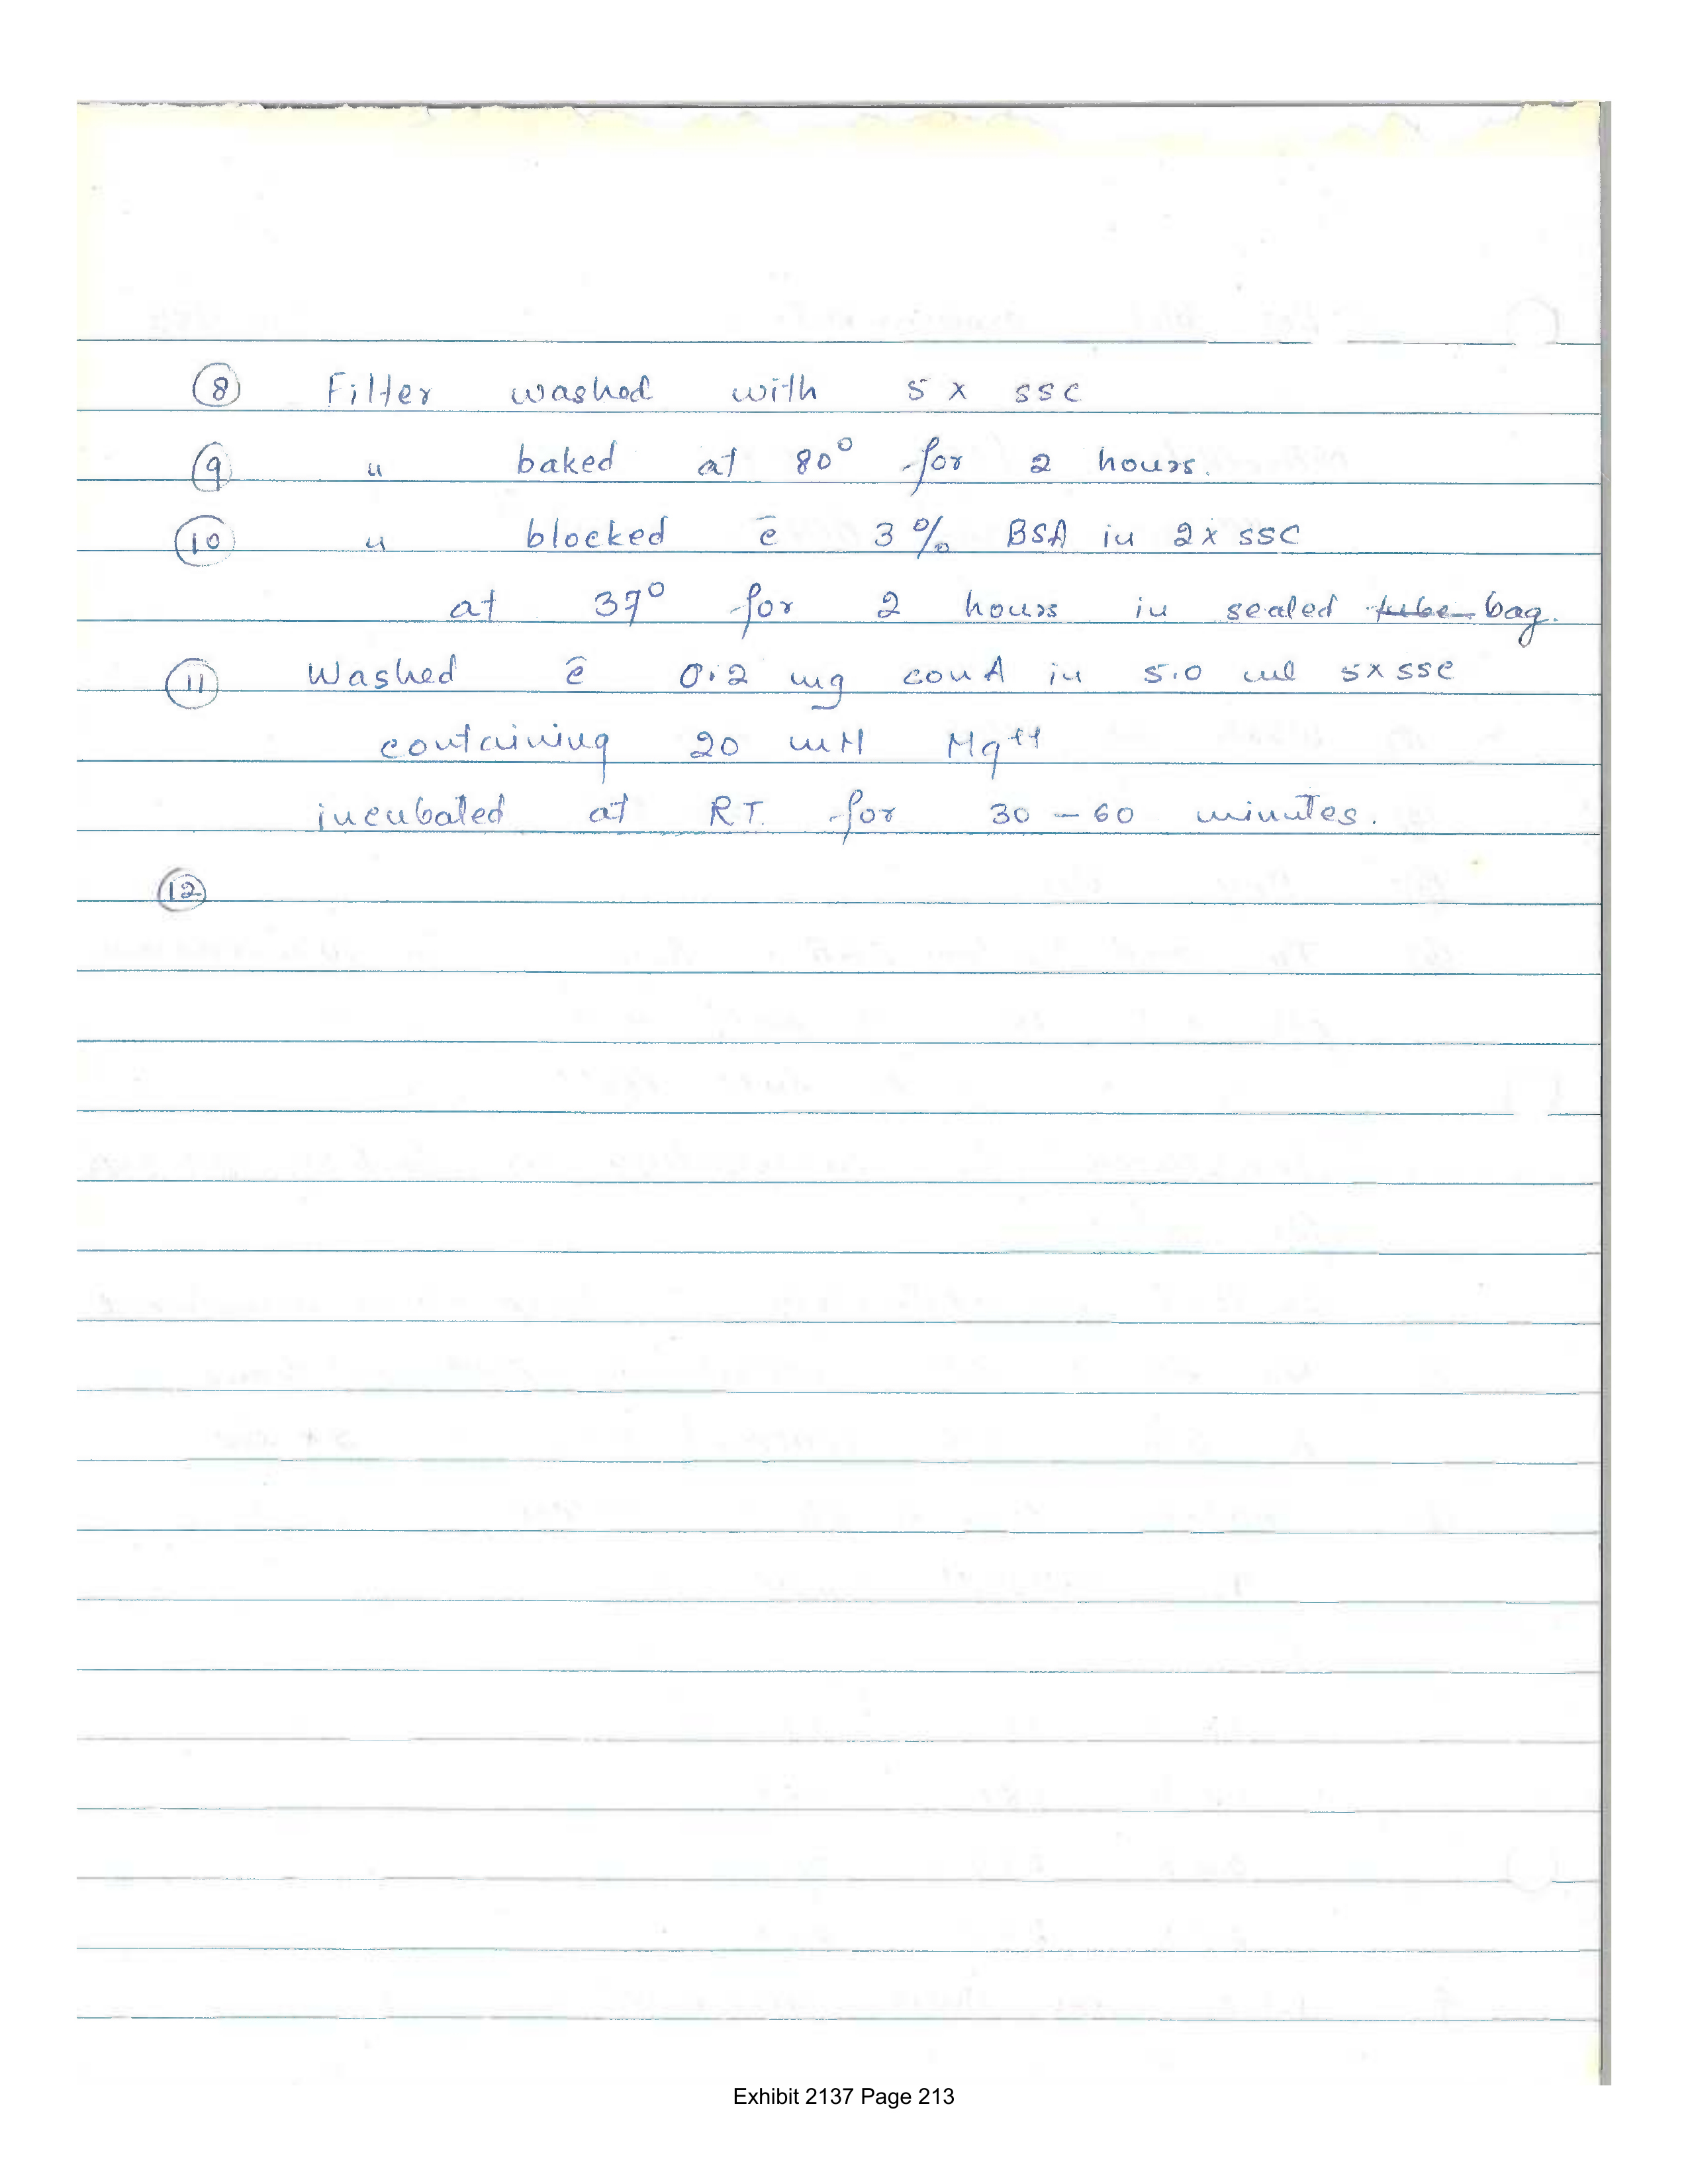 ⑧ Filter washed with 5 x SSC
⑨ " baked at 80° for 2 hours.
⑩ " blocked c̄ 3 % BSA in 2x SSC
at 37° for 2 hours in sealed tube bag.
⑪ Washed c̄ 0.2 mg conA in 5.0 ml 5x SSC
containing 20 mM Mg++
incubated at RT. for 30 - 60 minutes.
⑫
Exhibit 2137 Page 213